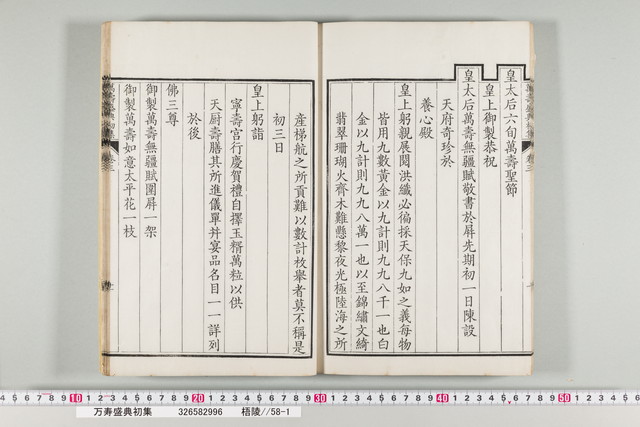 皇太后六旬萬壽聖節
皇上御製恭祝
皇太后萬壽無疆賦敬書於屏先期初一日陳設
天府奇珍於
養心殿
皇上躬親展閱洪纖必徧採天保九如之義每物
皆用九數黃金以九計則九九八千一也白
金以九計則九九八萬一也以至錦繡文綺
翡翠珊瑚火齊木難懸黎夜光極陸海之所
產梯航之所貢難以數計枚舉者莫不稱是
初三日
皇上躬詣
寧壽宮行慶賀禮自擇玉糈萬粒以供
天廚壽膳其所進儀單幷宴品名目一一詳列
於後
佛三尊
御製萬壽無疆賦圍屏一架
御製萬壽如意太平花一枝
万寿盛典初集 326582996 梧陵//58-1
10 20 30 40 50